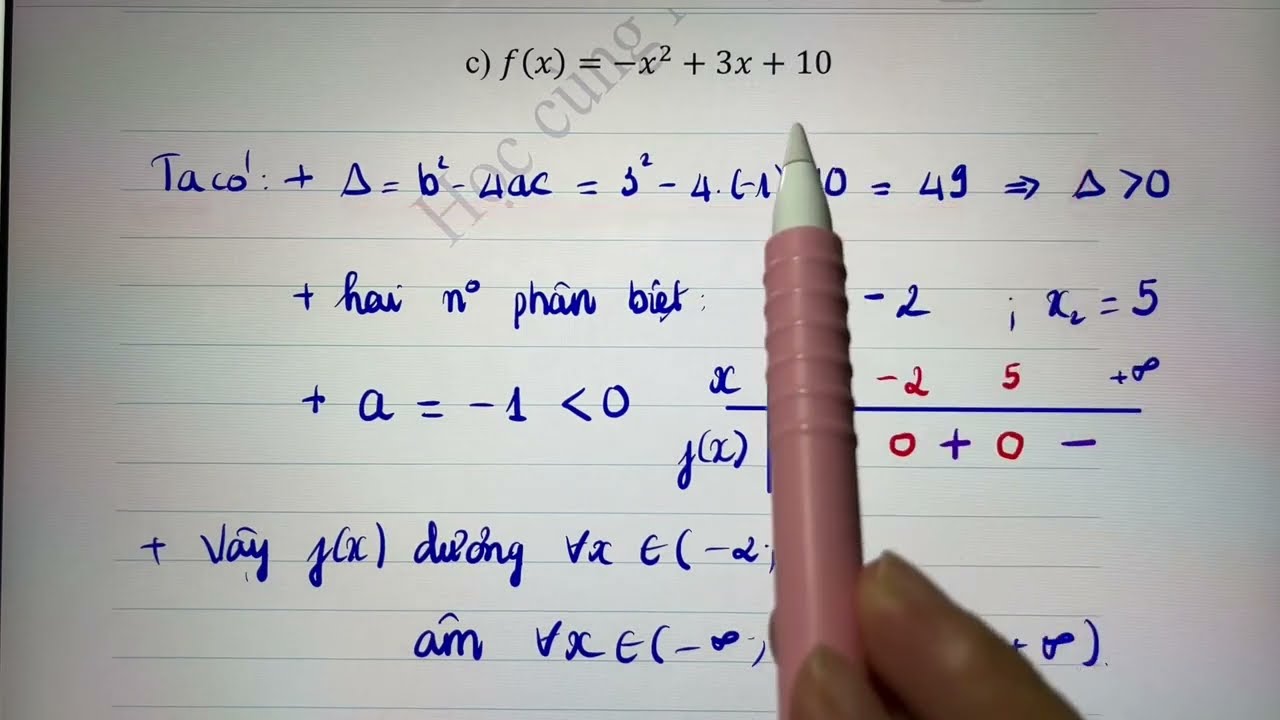 c) f(x) = −x² + 3x + 10
Ta có: + Δ = b² - 4ac = 3² - 4.(-1) 10 = 49 ⇒ Δ > 0
+ hai n° phân biệt: -2 ; x₂ = 5
+ a = -1 < 0
x -2 5 +∞
f(x) 0 + 0 -
+ Vậy f(x) dương ∀x ∈ (-2;
âm ∀x ∈ (-∞; +∞).
Học cùng